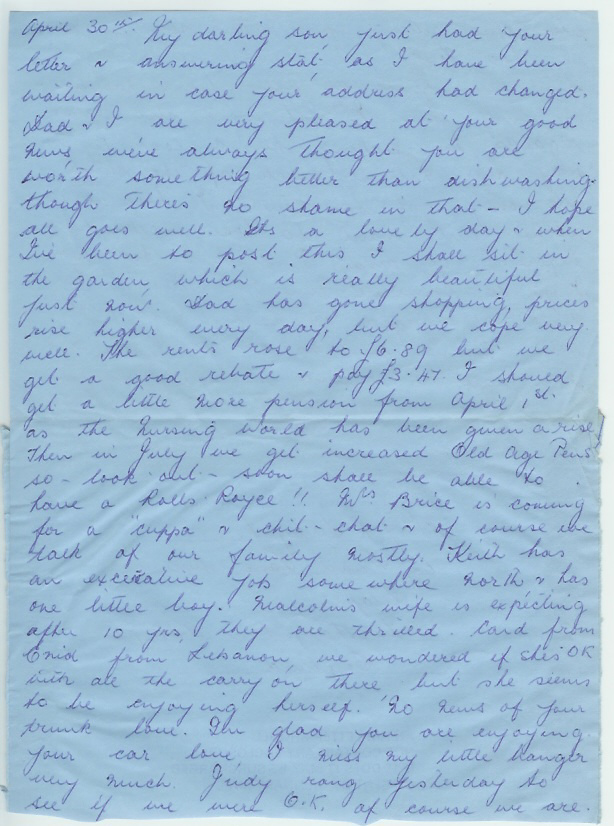 April 30th. My darling son, just had your
letter & answering stat, as I have been
waiting in case your address had changed.
Dad & I are very pleased at your good
news, we've always thought you are
worth something better than dishwashing.
though there's no shame in that - I hope
all goes well. Its a lovely day & when
I've been to post this I shall sit in
the garden, which is really beautiful
just now. Dad has gone shopping, prices
rise higher every day, but we cope very
well. The rents rose to £6.89 but we
get a good rebate & pay £3.47. I should
get a little more pension from April 1st.
as the Nursing world has been given a rise
Then in July we get increased Old Age Pens
so - look out - soon shall be able to
have a Rolls Royce!! Mrs Brice is coming
for a "cuppa" & chit-chat & of course we
talk of our family mostly. Keith has
an executive job somewhere North & has
one little boy. Malcolm's wife is expecting
after 10 yrs, they are thrilled. Card from
Enid from Lebanon, we wondered if she's OK
with all the carry on there but she seems
to be enjoying herself. No news of your
trunk love. I'm glad you are enjoying
your car love, I miss my little banger
very much. Judy rang yesterday to
see if we were O.K. of course we are.